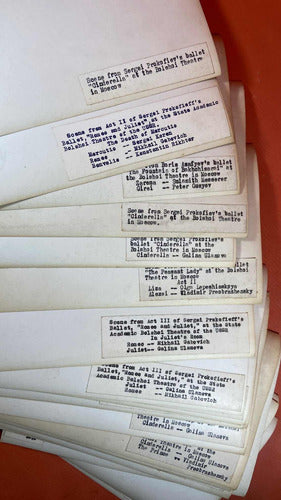 Scene from Sergei Prokofiev's ballet
"Cinderella" at the Bolshoi Theatre
in Moscow
Scene from Act II of Sergei Prokofieff's
Ballet "Romeo and Juliet," at the State Academic
Bolshoi Theatre of the USSR.
The Death of Marcutio
Marcutio -- Sergei Koren
Romeo -- Mikhail Gabovich
Benvolio -- Konstantin Rikhter
from Boris Asafyev's ballet
"The Fountain of Bakhchisarai" at
the Bolshoi Theatre in Moscow
Zarema -- Sulamith Messerer
Girei -- Peter Gusyev
Scene from Sergei Prokofiev's ballet
"Cinderella" at the Bolshoi Theatre
in Moscow
Scene from Sergei Prokofiev's ballet
"Cinderella" at the Bolshoi Theatre
in Moscow
Cinderella -- Galina Ulanova
"The Peasant Lady" at the Bolshoi
Theatre in Moscow
Act II
Liza -- Olga Lepeshinskaya
Alexei -- Vladimir Preobrazhensky
Scene from Act III of Sergei Prokofieff's
Ballet, "Romeo and Juliet," at the State
Academic Bolshoi Theatre of the USSR
In Juliet's Room
Romeo -- Mikhail Gabovich
Juliet -- Galina Ulanova
Scene from Act III of Sergei Prokofieff's
Ballet, "Romeo and Juliet," at the State
Academic Bolshoi Theatre of the USSR
Juliet -- Galina Ulanova
Romeo -- Mikhail Gabovich
Theatre in Moscow
Cinderella -- Galina Ulanova
Theatre in Moscow
Cinderella -- Galina Ulanova
The Prince -- Vladimir
Preobrazhensky